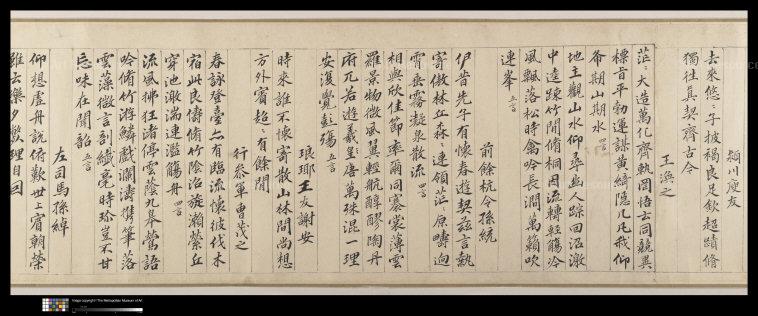 潁川庾友
去來悠〻子披褐良足欽超蹟脩
獨往真契齊古今
王渙之
茫〻大造萬化齊軌罔悟玄同競異
標旨平勃運謀黃綺隱几凡我仰
希期山期水 四言
地主觀山水仰尋幽人蹤回沼激
中逵踈竹間脩桐因流轉輕觴冷
風飄落松時禽吟長澗萬籟吹
連峯 五言
前餘杭令孫統
伊昔先子有懷春遊契茲言執
寄傲林丘森〻連領茫〻原疇迥
霄垂霧凝泉散流 四言
相與欣佳節率爾同褰裳薄雲
羅景物微風翼輕航醇醪陶丹
府兀若遊羲唐萬殊混一理
安復覺彭殤 五言
琅琊王友謝安
時來誰不懷寄散山林間尚想
方外賓超〻有餘閒
行參軍曹茂之
春詠登臺亦有臨流懷彼伐木
宿此良儔脩竹蔭沼旋瀨縈丘
穿池激湍連濫觴舟 四言
流風拂枉渚停雲蔭九皋鶯語
吟脩竹游鱗戲瀾濤携筆落
雲藻微言剖纖毫時珍豈不甘
忘味在聞韶 五言
左司馬孫綽
仰想虛舟說俯歎世上賓朝榮
雖云樂夕斃理自回
Image copyright The Metropolitan Museum of Art